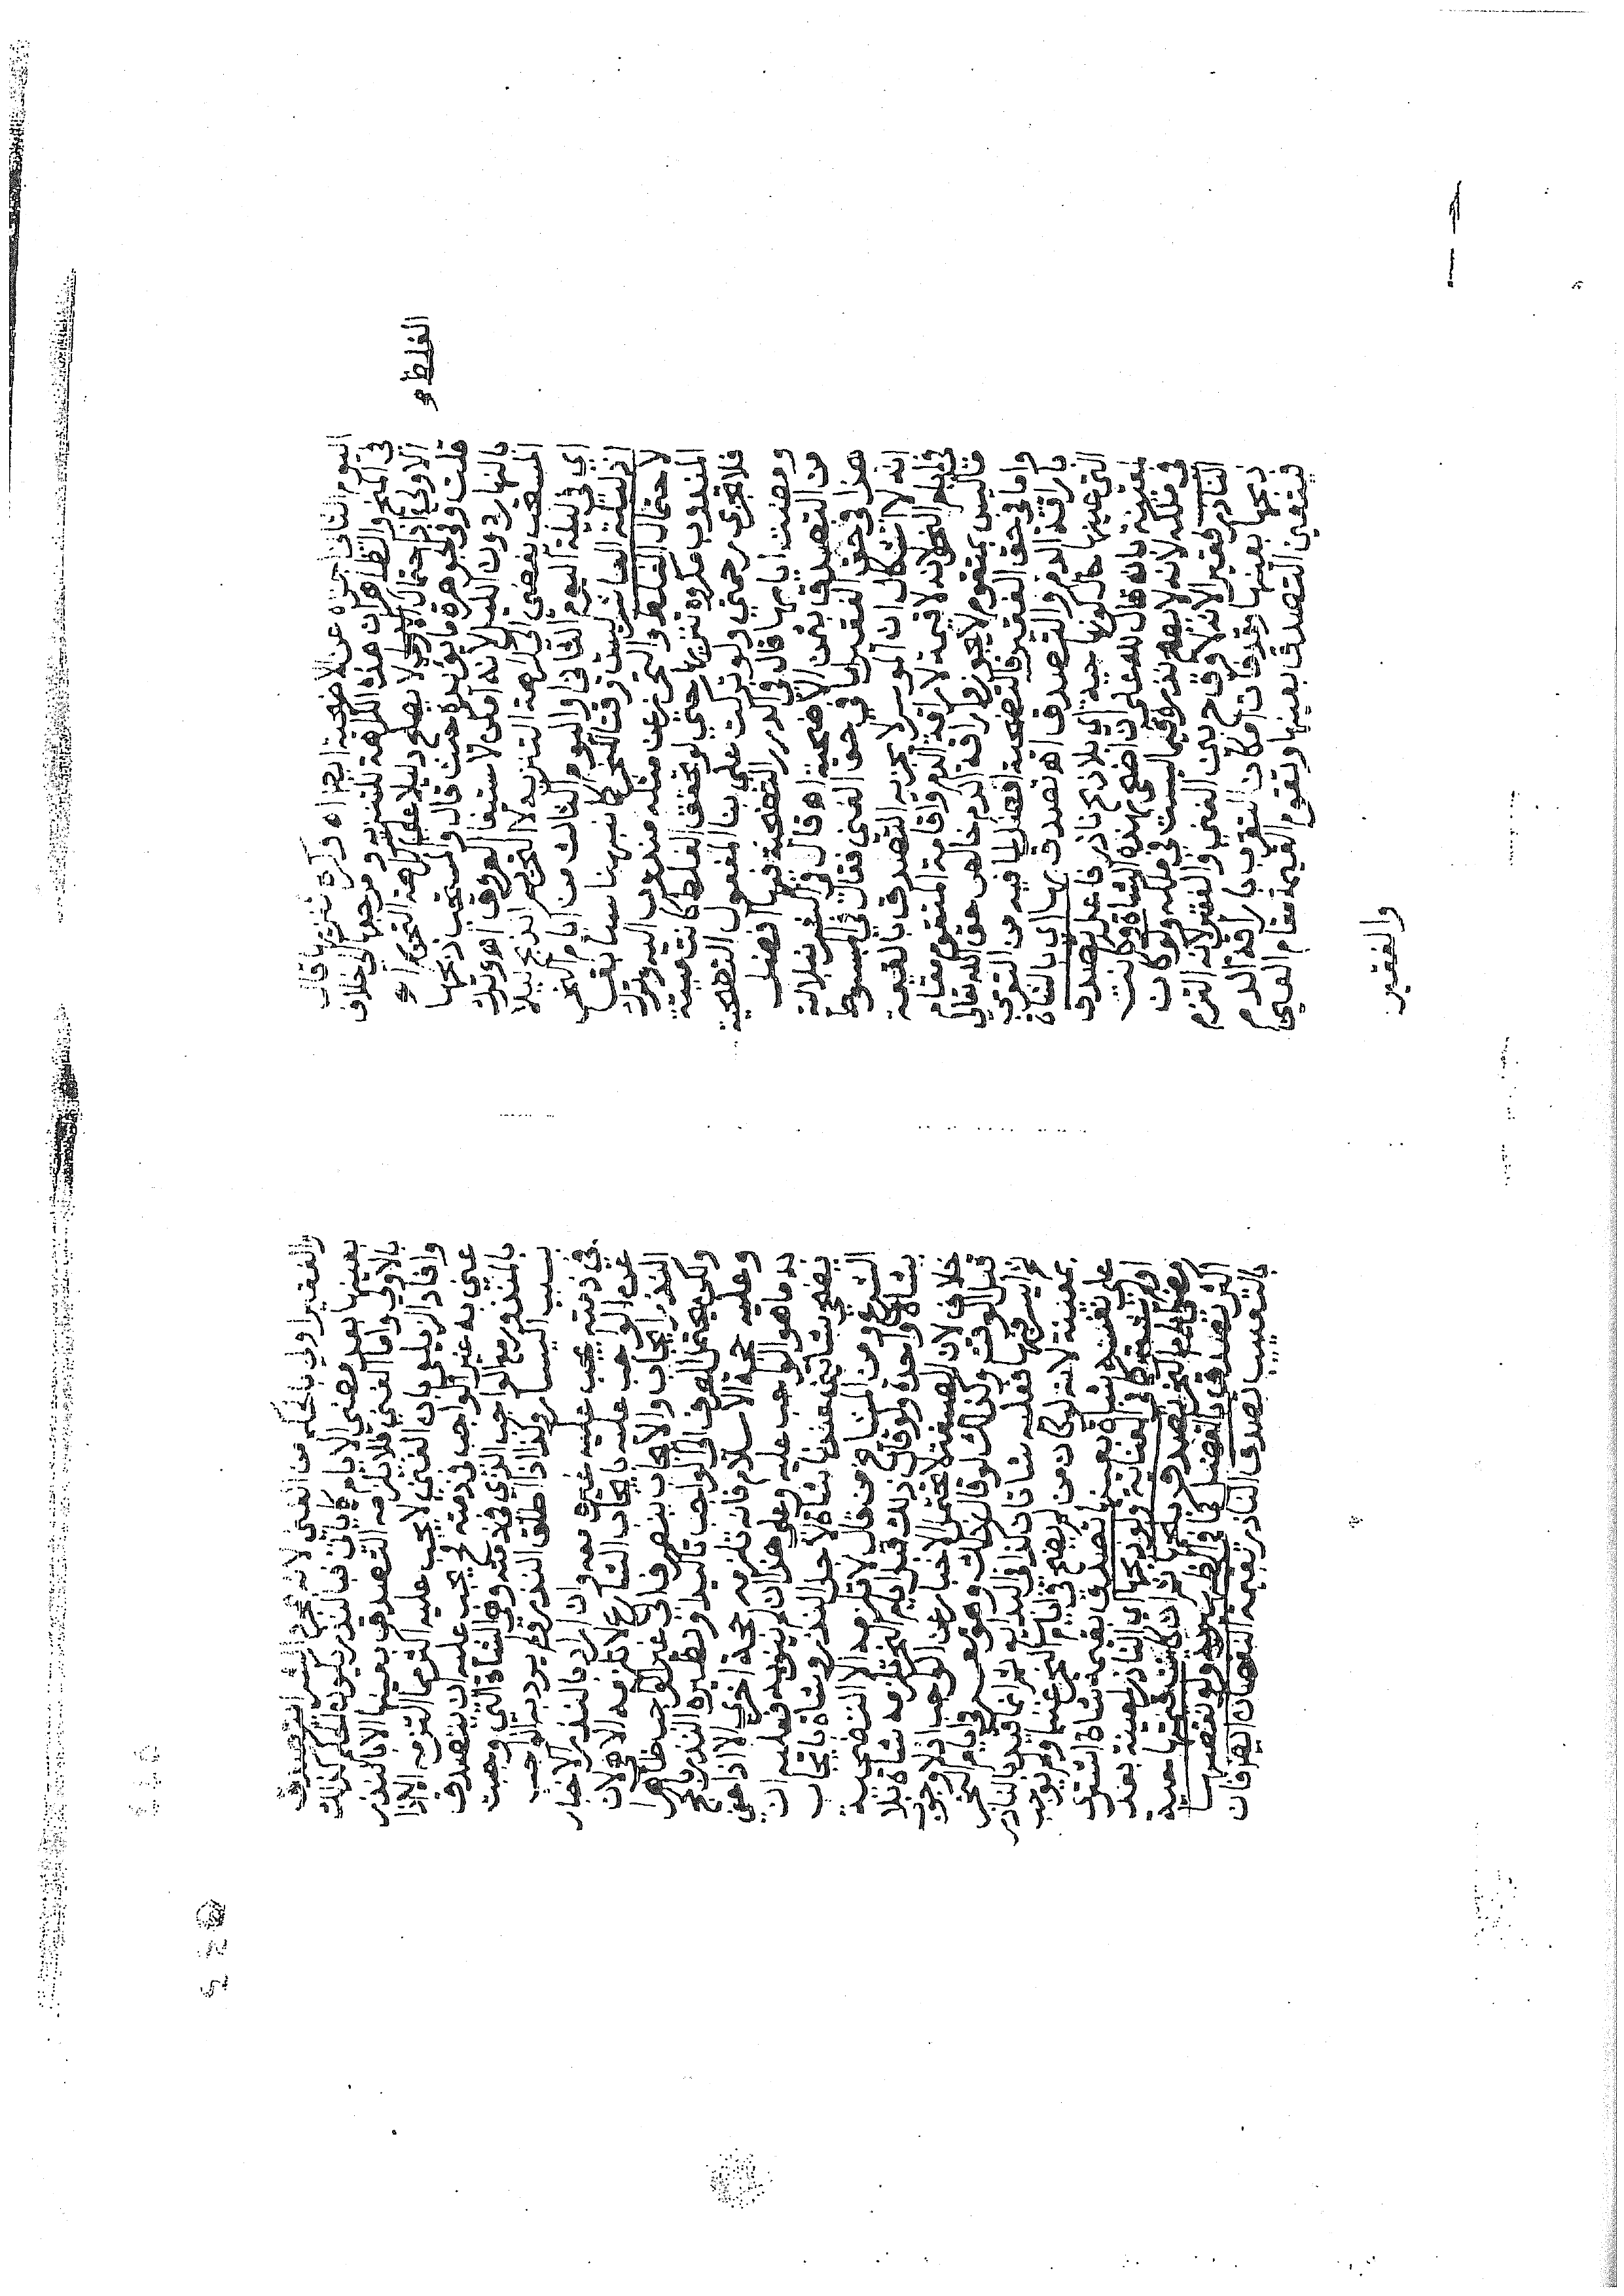 اليوم الثاني اجزاه عن الاضحية اجزاه وكره تنزيها قال
في المنح والظاهر ان هذه الكراهة للتنزيه ومرجعها الى خلاف
الاولى اذ احتمال الغلط لا يصلح دليلا على كراهة التحريم اه
الغلط و
قلت وفي الجوهرة ما يؤيده حيث قال والمستحب ذبحها
بالنهار دون الليل لانه امكن لاستيفا العروق اه وترك
المستحب يفضي الى كراهة التنزيه لا التحريم الذبح ليلا
اي في ليلة اليوم الثاني واليوم الثالث من ايام النحر
اذ ليلة العاشر ليست وقتا للنحر كما نبهنا سابقا
لاحتمال الغلط والتحرز عن مثله مندوب اليه وترك
المندوب مكروه تنزيها حتى لو تحقق الغلط كانت ميتة
فلا تجزي رحمتي ولو تركت على بنا المفعول التضحية
ومضت ايامها قال في الدرر التضحية فيها افضل
من التصدق بثمن الاضحية اه قال في الشرنبلالية
هذا في حق الفقير اما في حق الغني فقال في المبسوط
انه لا اشكال ان الموسر لا يجزيه التصدق بالقيمة
في ايام النحر لانه لا قيمة لاراقة الدم واقامة المتقوم مقام
ما ليس بمتقوم لا يجوز واراقة الدم خالص حق الله تعالى
واما في حق الفقير فالتضحية افضل لما فيه من التقرب
باراقة الدم والتصدق اه تصدق بها اي بالشاة
التي عينها حال كونها حية اي بلا ذبح ناذر فاعل تصدق
لمعينة بان قال لله علي ان اضحي هذه الشاة وكانت
في ملكه لانه لا يصح نذره فيما ليست في ملكه ولو كان
الناذر فقيرا لانه لا فرق ح بين الغني والفقير لانه التزم
ذبحها بعينها وقد فات امكان التقرب باراقة الدم
فيتعين التصدق بعينها وتقوم القيمة مقام العين
والفقير
والفقير اولى بالحكم من الغني لانه بمجرد الشرا
بعينها بعد مضي الايام كما ياتي فبالنذر يكون الحكم كذلك
بالاولى واما الغني فلا تلزمه التصدق بعينها الا بالنذر
وافاد الزيلعي بان الغني لا يجب عليه التزمها التزمه الا اذا
عني به غير الواجب في ذمته فح يجب عليه ان يتصدق
بالمنذور مع الواجب الذي في ذمته وهي الشاة التي وجبت
بسبب اليسار وكذا اذا اطلق النذر ولم يرد به الواجب
في ذمته يجب عليه غيره معه وان اراد بالنذر الاخبار
عن الواجب عليه بايجاب الشارع لا تلزمه الا هي لان
النذر ايجاب والايجاب ينصرف الى غير الواجب ظاهرا
ولكن يحتمل الصرف الى الواجب تاكيدا ونظيره النذر بالحج
وعليه حجة الاسلام فانه تلزمه حجة اخرى الا اذا عنى
به ما هو الواجب عليه وعلى هذا ان لم ينو به فعليه ان
يضحي شاتين عندنا شاة لاجل النذر وشاة بايجاب
الشرع ومن المشايخ من قال لا تلزمه الا التضحية
بشاة واحدة ولو قال ذلك قبل ايام النحر تلزمه شاة بلا
خلاف لان الصيغة لا تحتمل الاخبار عن الواجب اذ لا وجوب
قبل الوقت وكذلك لو قال ذلك وهو معسر في ايام النحر
ثم ايسر فيها فعليه شاتان كذا في البدايع ثم انما قيد بالناذر
بمعينة لانه لو كان من لم يضح في ايام النحر غنيا ولم يوجب
على نفسه شاة بعينها تصدق بقيمة شاة اشترى
او لم يشتر كما في العناية ولو ذبحها اي الناذر لمعينة بعد
مضي ايام النحر تصدق بلحمها
التي تصدق بالفضل كما في الظهيرية ولو نقصها
بالتعييب تصدق الناذر بقيمة النقصان ايضا فان